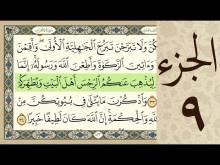 الجزء
٩
كُنَّ وَلَا تَبَرَّجْنَ تَبَرُّجَ الْجَاهِلِيَّةِ الْأُولَىٰ وَأَقِمْنَ
وَءَاتِينَ الزَّكَوٰةَ وَأَطِعْنَ اللَّهَ وَرَسُولَهُ إِنَّمَا
لِيُذْهِبَ عَنكُمُ الرِّجْسَ أَهْلَ الْبَيْتِ وَيُطَهِّرَكُمْ
وَاذْكُرْنَ مَا يُتْلَىٰ فِي بُيُوتِكُنَّ مِنْ
وَالْحِكْمَةِ إِنَّ اللَّهَ كَانَ لَطِيفًا خَبِيرًا